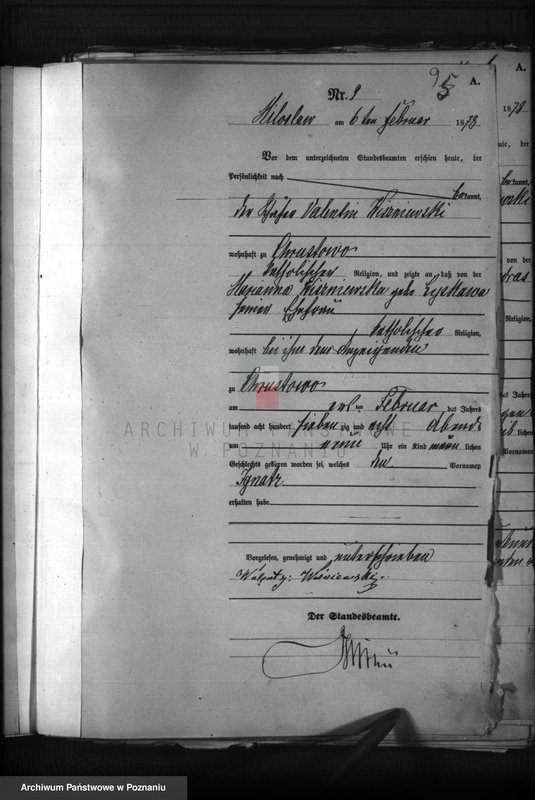 95
A.
Nr. 9
Miloslaw am 6ten Februar 1878
Vor dem unterzeichneten Standesbeamten erschien heute, der
Persönlichkeit nach
bekannt,
der Valentin Wiszniewski
wohnhaft zu Chrustowo
katholischer Religion, und zeigte an, daß von der
Marianna Wiszniewska geb.
seiner Ehefrau
katholischer Religion,
wohnhaft bei ihm dem Anzeigenden
zu Chrustowo
am ersten Februar des Jahres
tausend acht hundert sieben zig und acht Abends
um neun Uhr ein Kind männlichen
Geschlechts geboren worden sei, welches den Vornamen
Ignatz
erhalten habe
Vorgelesen, genehmigt und unterschrieben
Walenty: Wisniewski
Der Standesbeamte.
A.
1878
ARCHIWUM PAŃSTWOWE
W POZNANIU
Archiwum Państwowe w Poznaniu